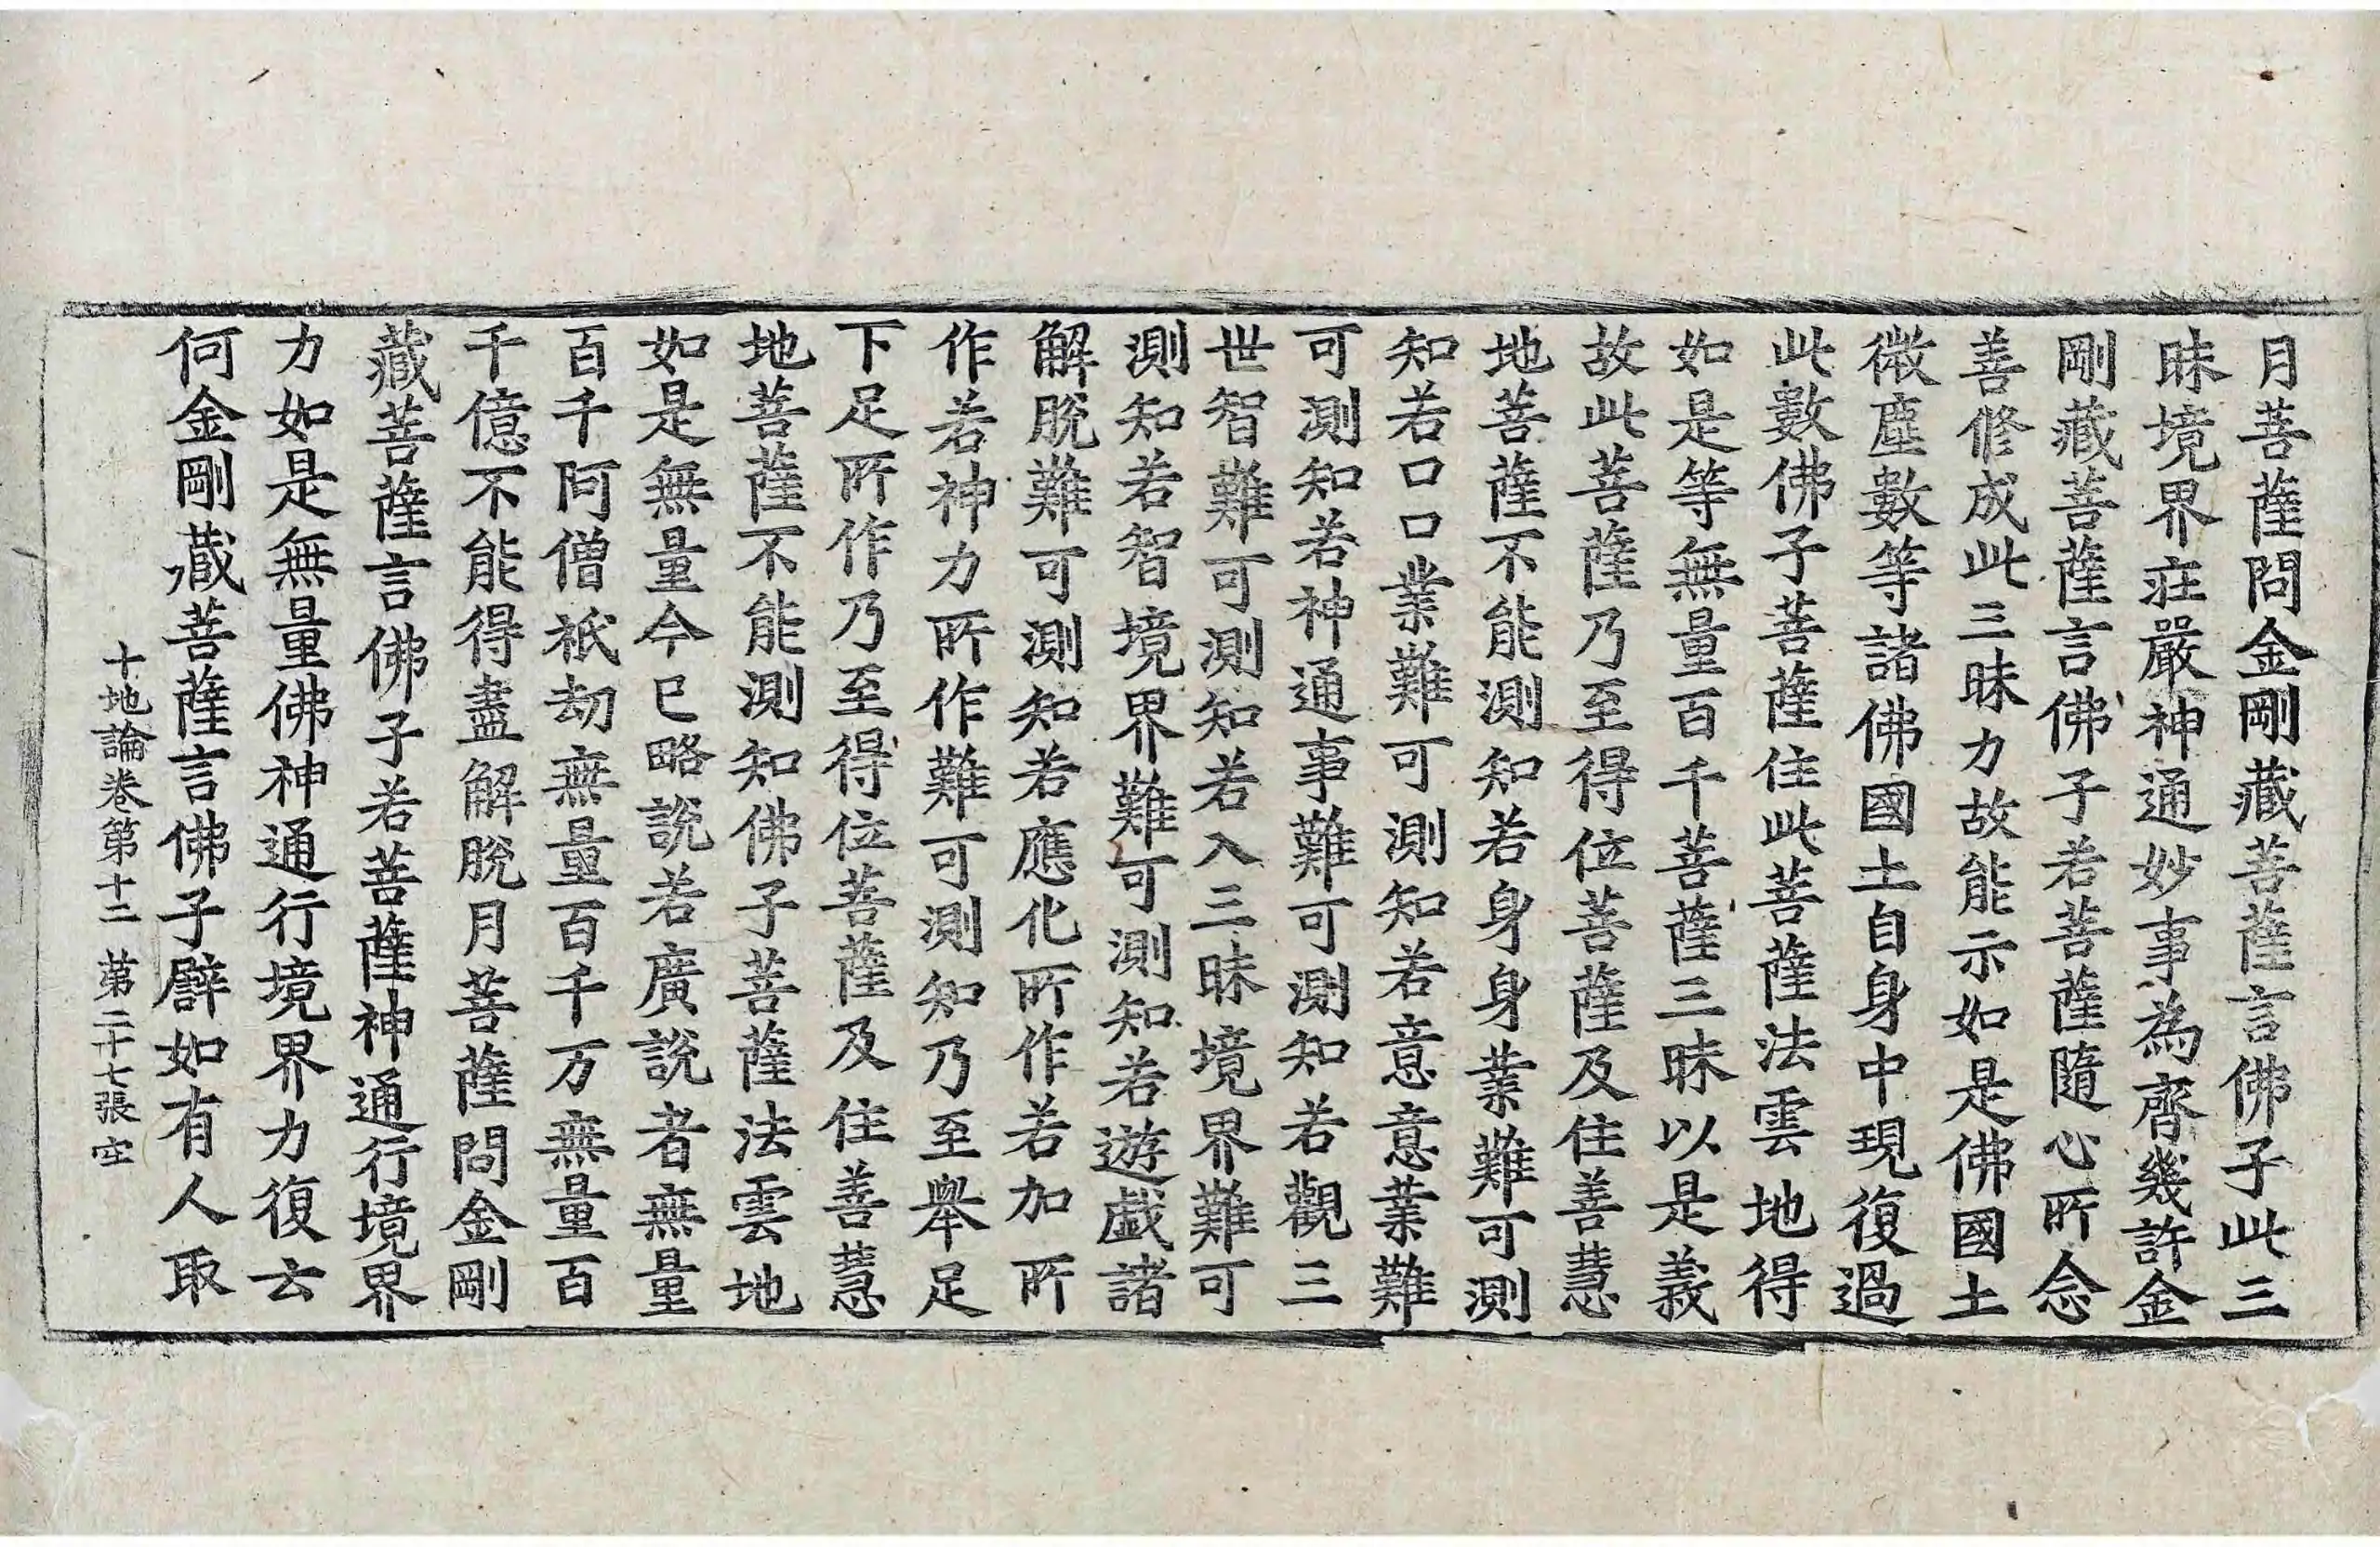 月菩薩問金剛藏菩薩言佛子此三
昧境界莊嚴神通妙事為齊幾許金
剛藏菩薩言佛子若菩薩隨心所念
善修成此三昧力故能示如是佛國土
微塵數等諸佛國土自身中現復過
此數佛子菩薩住此菩薩法雲地得
如是等無量百千菩薩三昧以是義
故此菩薩乃至得位菩薩及住善慧
地菩薩不能測知若身身業難可測
知若口口業難可測知若意意業難
可測知若神通事難可測知若觀三
世智難可測知若入三昧境界難可
測知若智境界難可測知若遊戲諸
解脫難可測知若應化所作若加所
作若神力所作難可測知乃至舉足
下足所作乃至得位菩薩及住善慧
地菩薩不能測知佛子菩薩法雲地
如是無量今已略說若廣說者無量
百千阿僧祇劫無量百千万無量百
千億不能得盡解脫月菩薩問金剛
藏菩薩言佛子若菩薩神通行境界
力如是無量佛神通行境界力復云
何金剛藏菩薩言佛子譬如有人取
十地論卷第十二 第二十七張 空